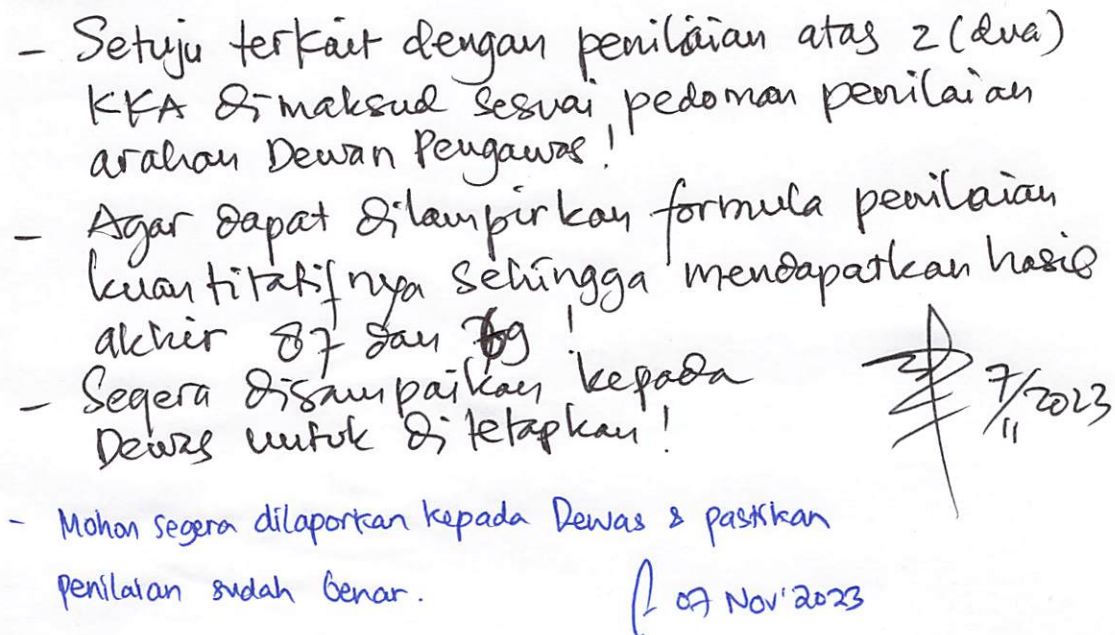 - Setuju terkait dengan penilaian atas 2 (dua)
KKA dimaksud sesuai pedoman penilaian
arahan Dewan Pengawas!
- Agar dapat dilampirkan formula penilaian
kuantitatifnya sehingga mendapatkan hasil
akhir 87 dan 69!
- Segera disampaikan kepada
Dewas untuk ditetapkan!
7/11/2023
- Mohon segera dilaporkan kepada Dewas & pastikan
penilaian sudah benar.
07 Nov' 2023